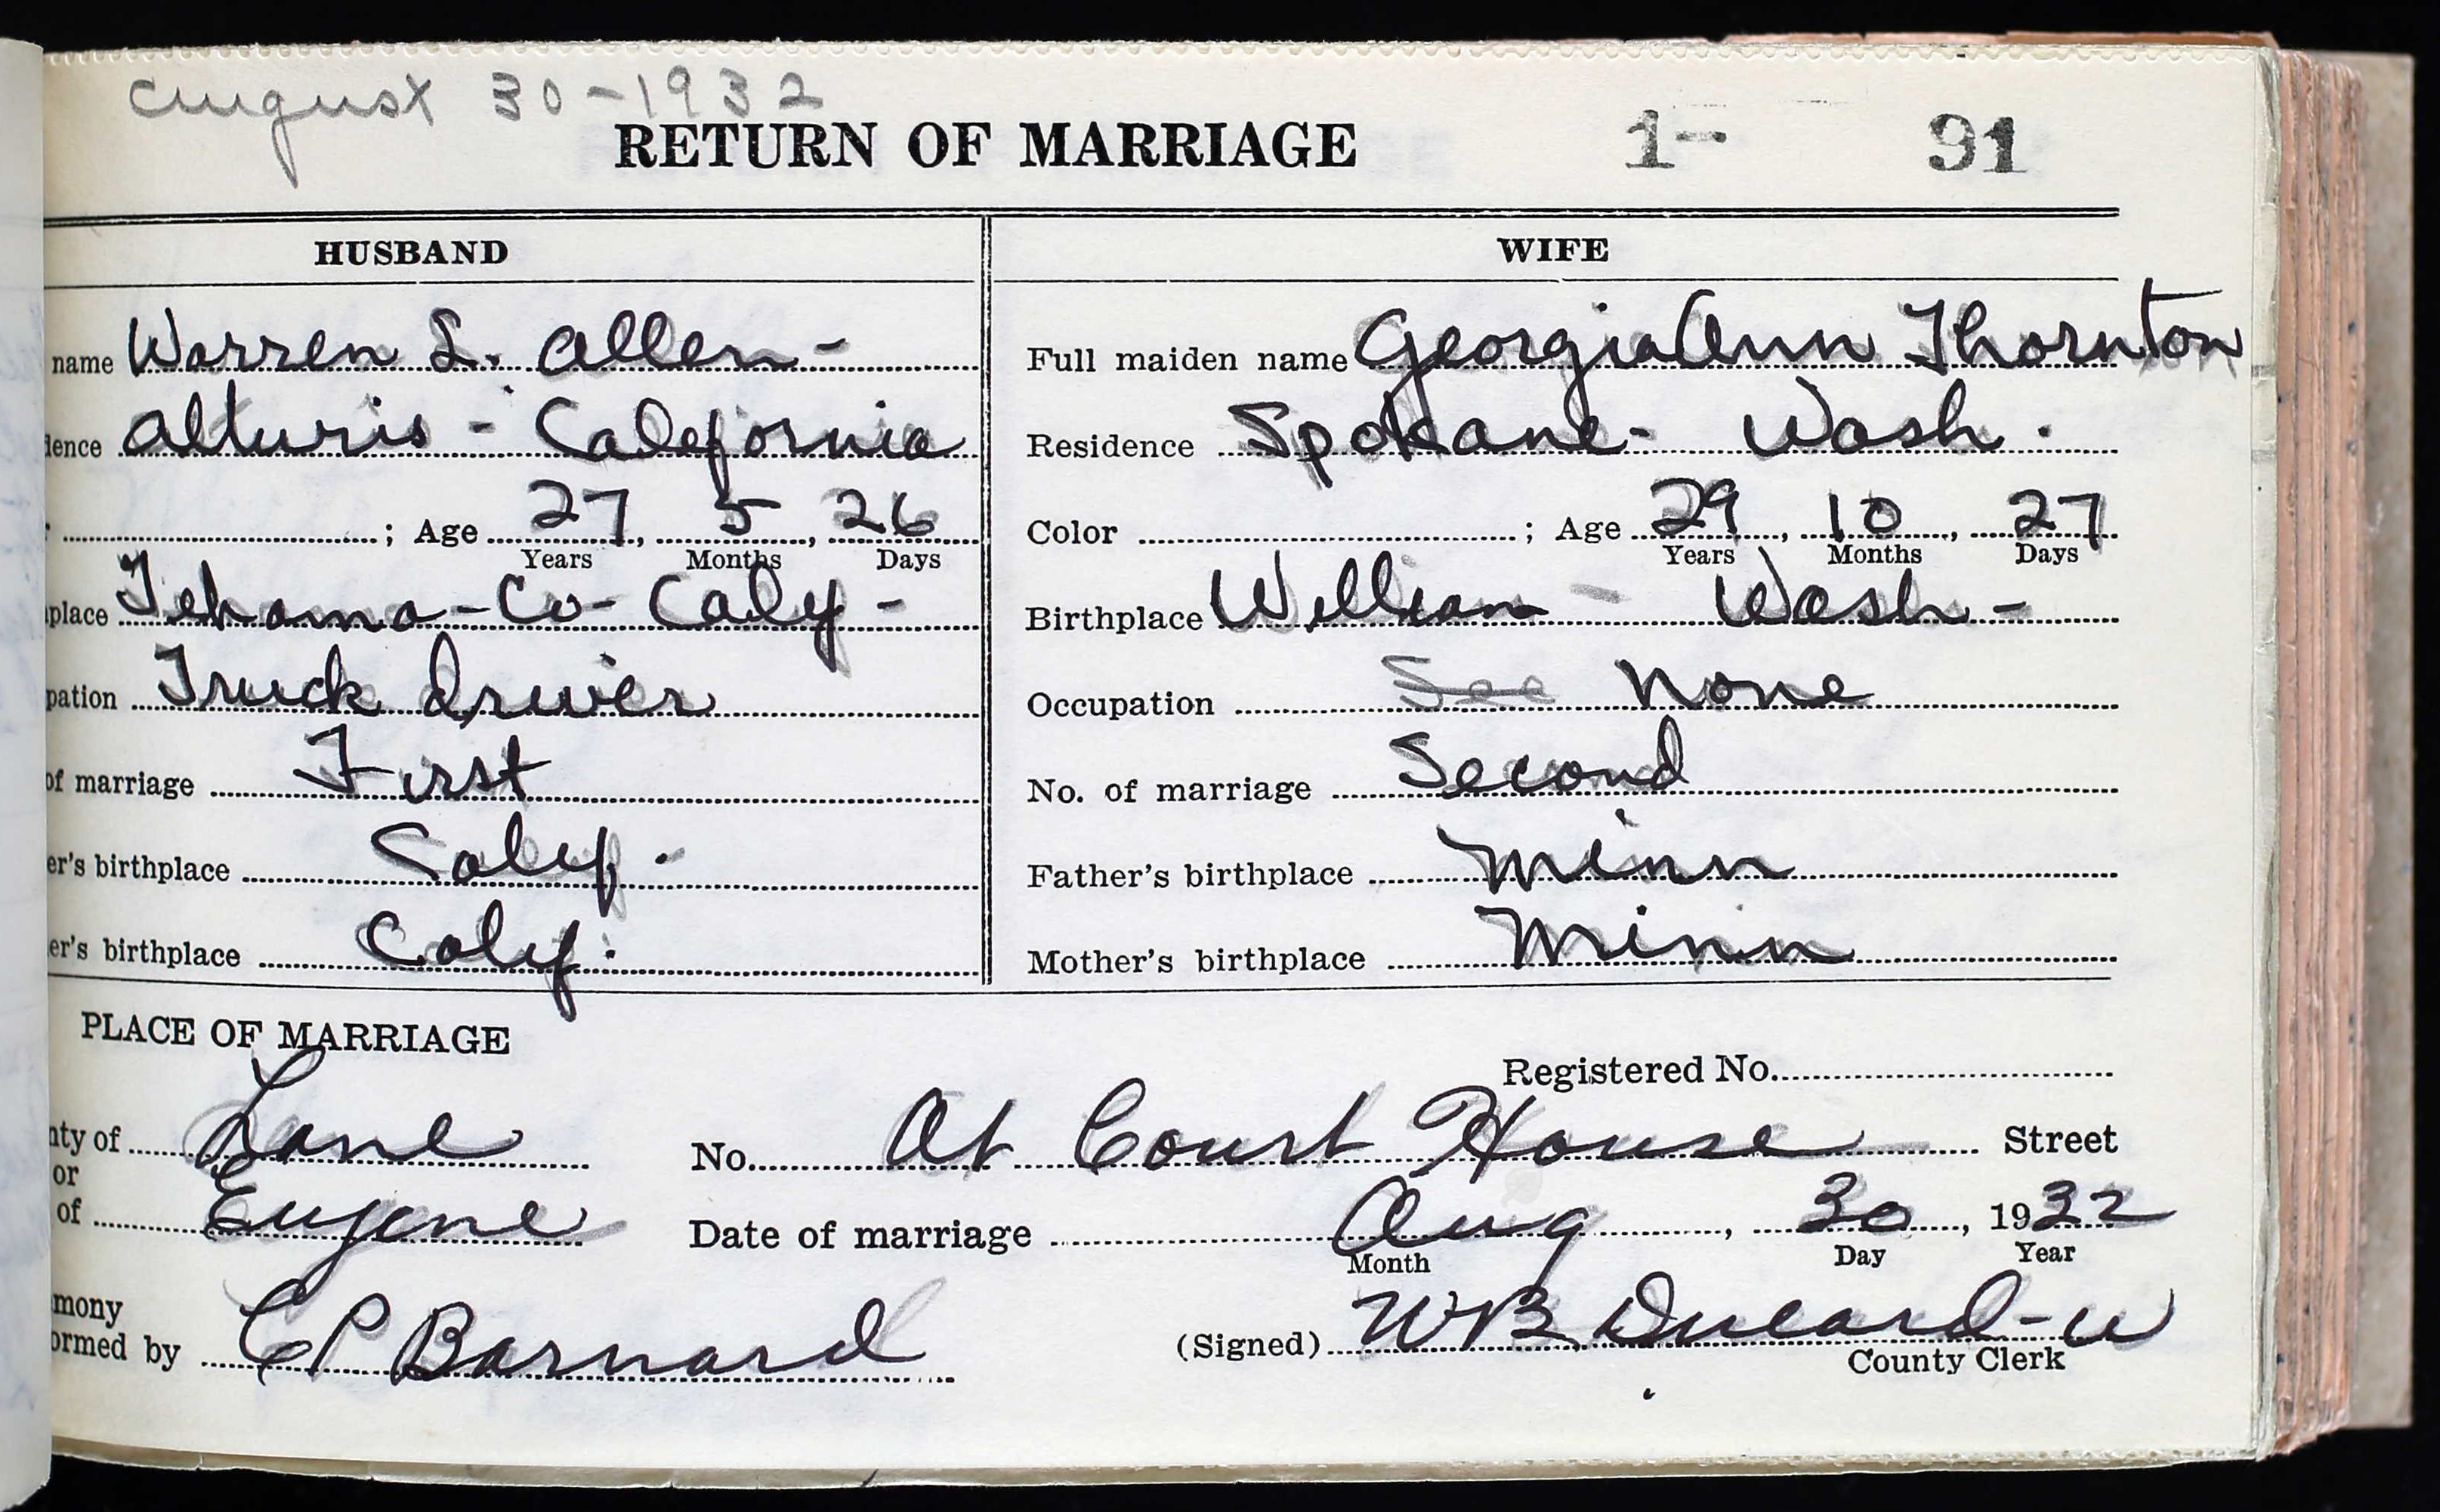 August 30-1932
RETURN OF MARRIAGE 1- 91
HUSBAND WIFE
name Warren L. Allen -
Full maiden name Georgia Ann Thornton
dence Alturis - California
Residence Spokane - Wash.
; Age 27, 5, 26
Years Months Days
Color ; Age 29, 10, 27
Years Months Days
place Tehama - Co - Calif -
Birthplace Willian - Wash -
pation Truck driver
Occupation See None
of marriage First
No. of marriage Second
er's birthplace Calif.
Father's birthplace Minn
er's birthplace Calif.
Mother's birthplace Minn
PLACE OF MARRIAGE
Registered No.
nty of Lane
or
of Eugene
No. At Court House Street
Date of marriage Aug, 30, 1932
Month Day Year
mony
ormed by E P Barnard
(Signed) W B
County Clerk